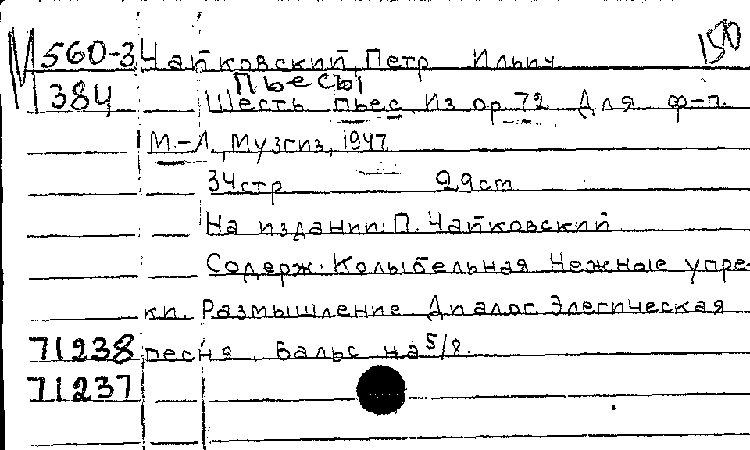 М 560-3 Чайковский, Петр Ильич 150
384 Пьесы
Шесть пьес из ор. 72 Для ф-п.
М.-Л., Музгиз, 1947
34стр 29cm
На издании: П. Чайковский
Содерж: Колыбельная Нежные упре-
ки. Размышление Диалог Элегическая
71238 песня, Вальс на 5/8.
71237